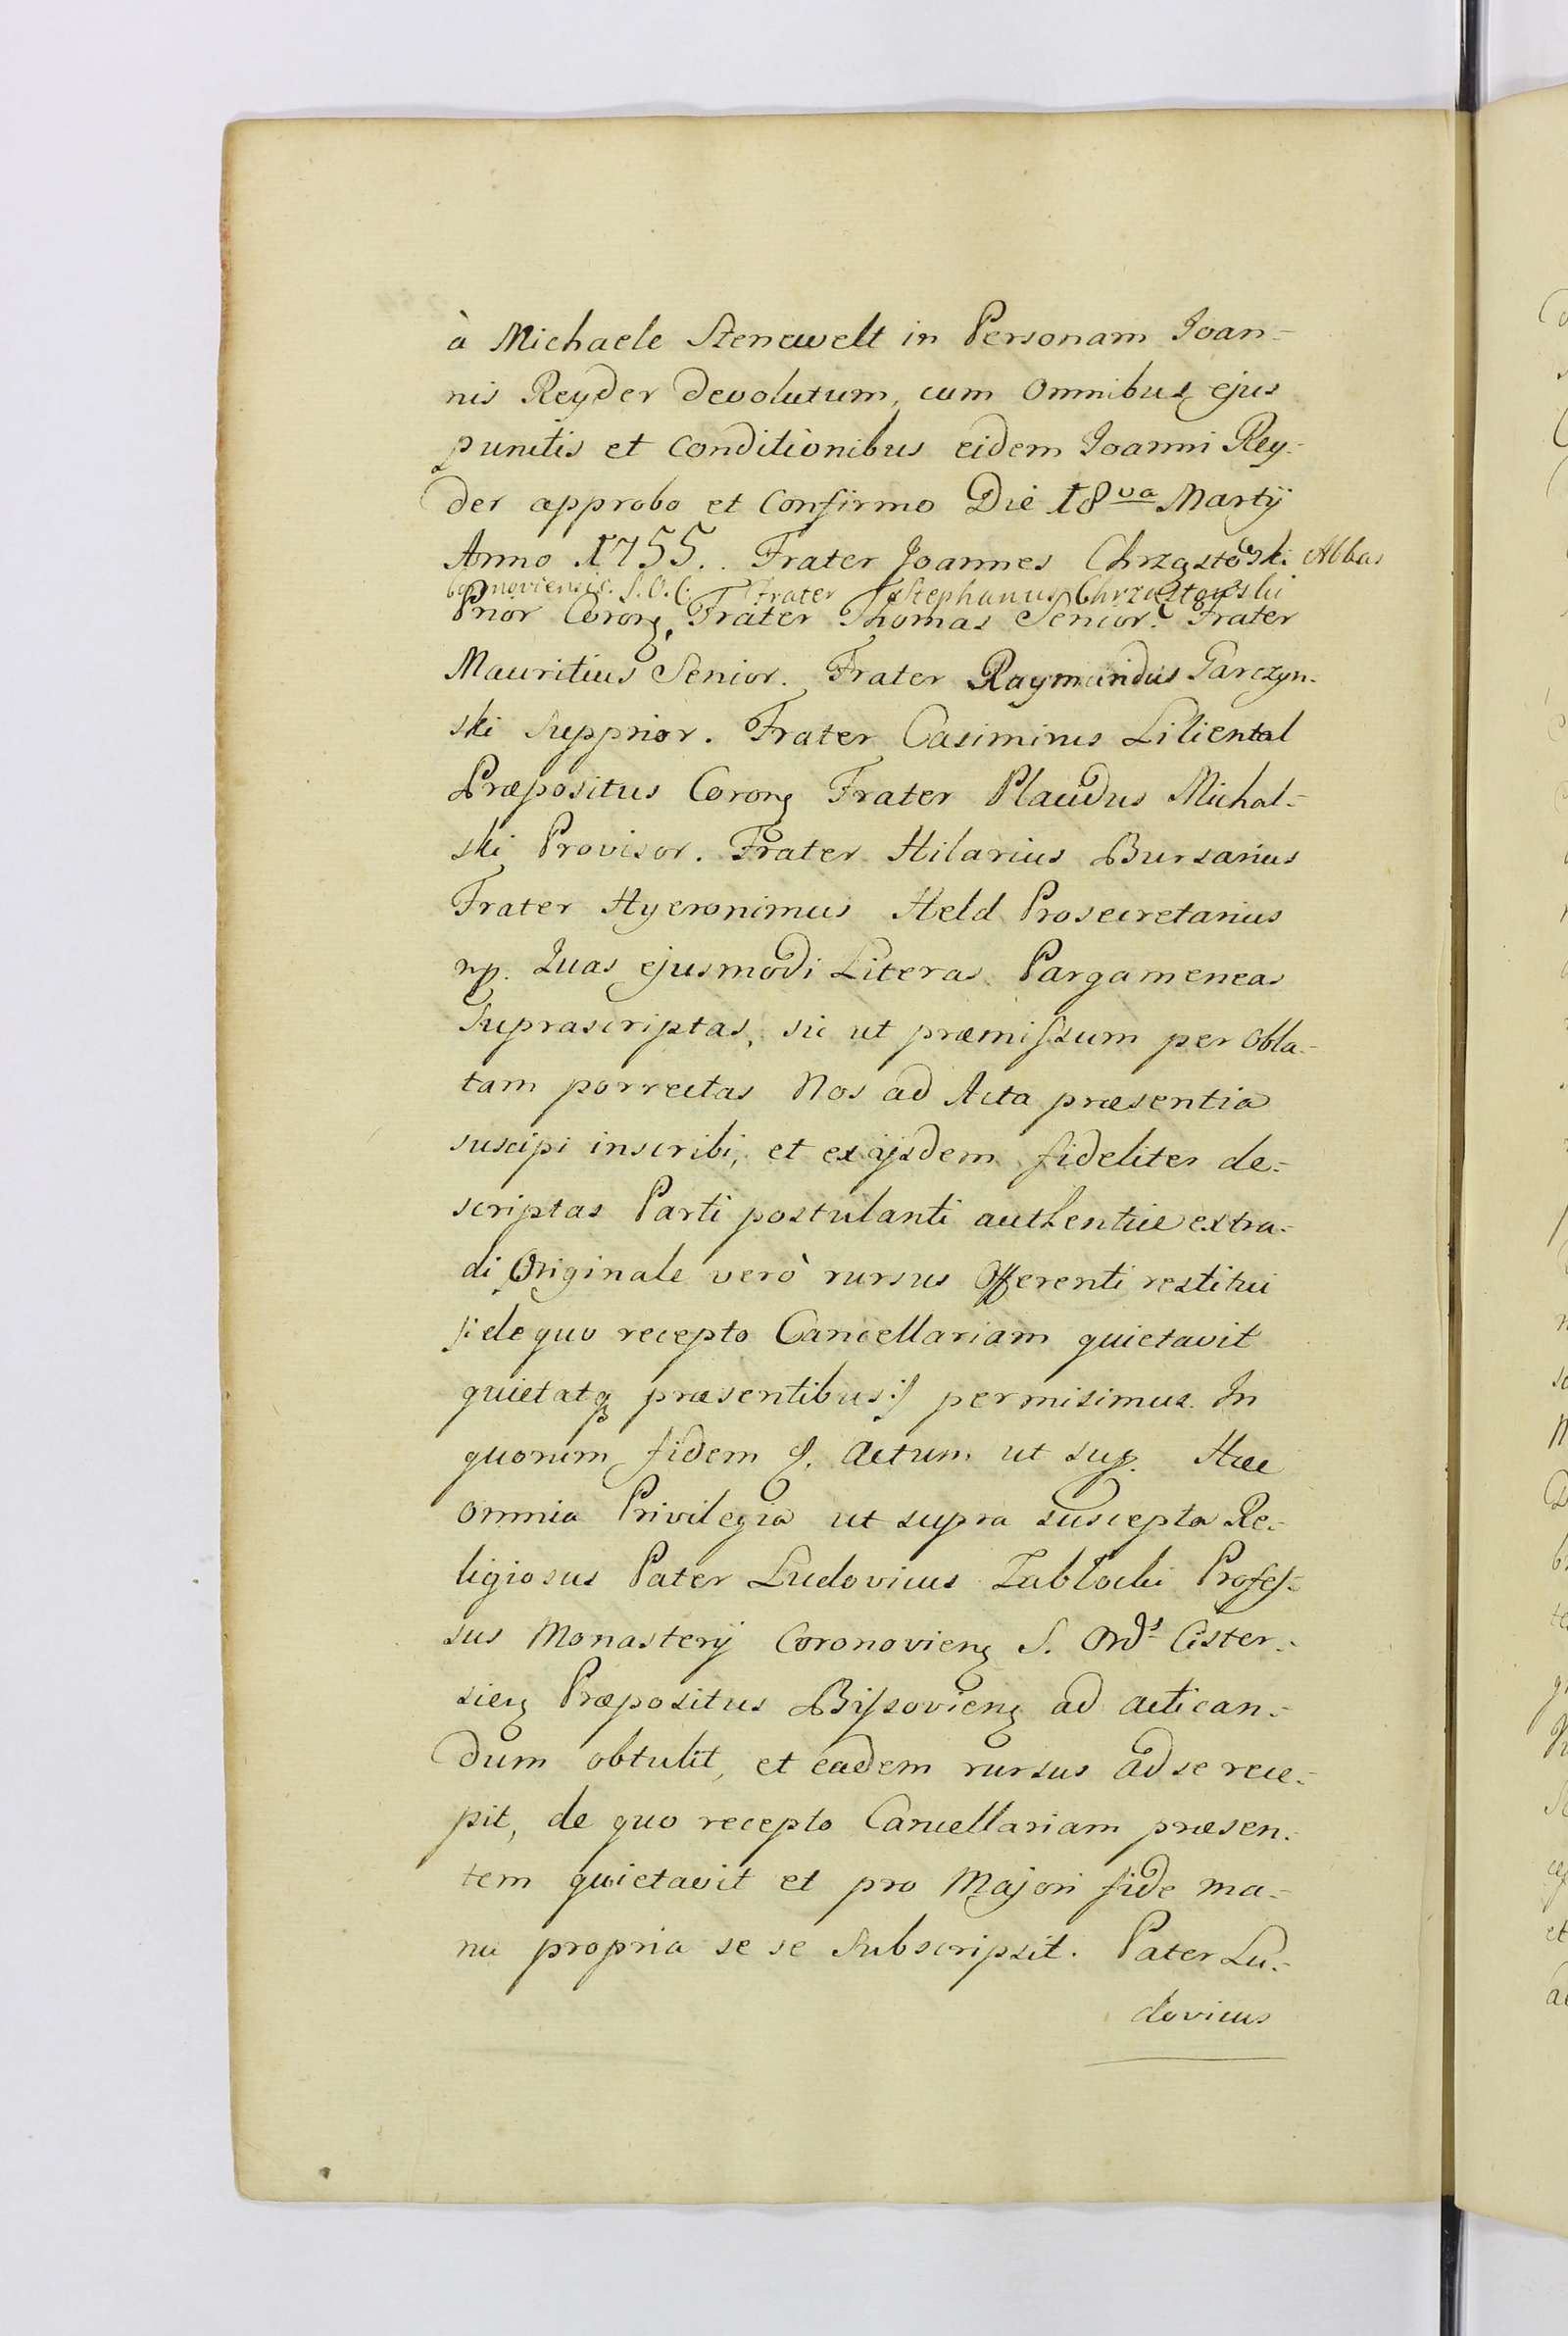 à Michaele Stenewelt in Personam Joan=
nis Reyder devolutum, cum omnibus ejus
punctis et Conditionibus eidem Joanni Rey=
der approbo et Confirmo Die 18va Martÿ
Anno 1755. Frater Joannes Chrząstoẃski Abbas
Coronoviensis. S. O. C. Frater Stephanus Chrząstowski
Prior Coronȝ, Frater Thomas Senior. Frater
Mauritius Senior. Frater Raymundus Garczyn=
ski Supprior. Frater Casimirus Liliental
Præpositus Coronȝ Frater Placidus Michal=
ski Provisor. Frater Hilarius Bursarius
Frater Hyeronimus Held Prosecretarius
mp. Quas ejusmodi Literas Pargameneas
Suprascriptas, sic ut præmissum per obla=
tam porrectas Nos ad Acta præsentia
suscipi inscribi, et ex ijsdem fideliter de=
scriptas Parti postulanti authentice extra=
di Originale verò rursus Offerenti restitui
/:de quo recepto Cancellariam quietavit
quietatqȝ præsentibus:/ permisimus. In
quorum fidem &. Actum ut sup. Hæc
omnia Privilegia ut supra suscepta Re=
ligiosus Pater Ludovicus Zabłocki Profes=
sus Monasterÿ Coronoviensȝ S. Ords Cister=
siensȝ Præpositus Byssoviensȝ ad actican=
dum obtulit, et eadem rursus ad se rece=
pit, de quo recepto Cancellariam præsen=
tem quietavit et pro Majori fide ma=
nu propria se se Subscripsit. Pater Lu=
dovicus